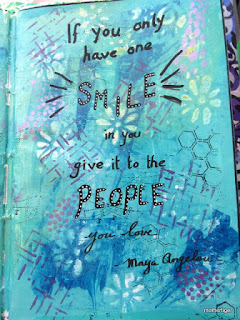 If you only
have one
SMILE
in you
give it to the
PEOPLE
you love
Maya Angelou